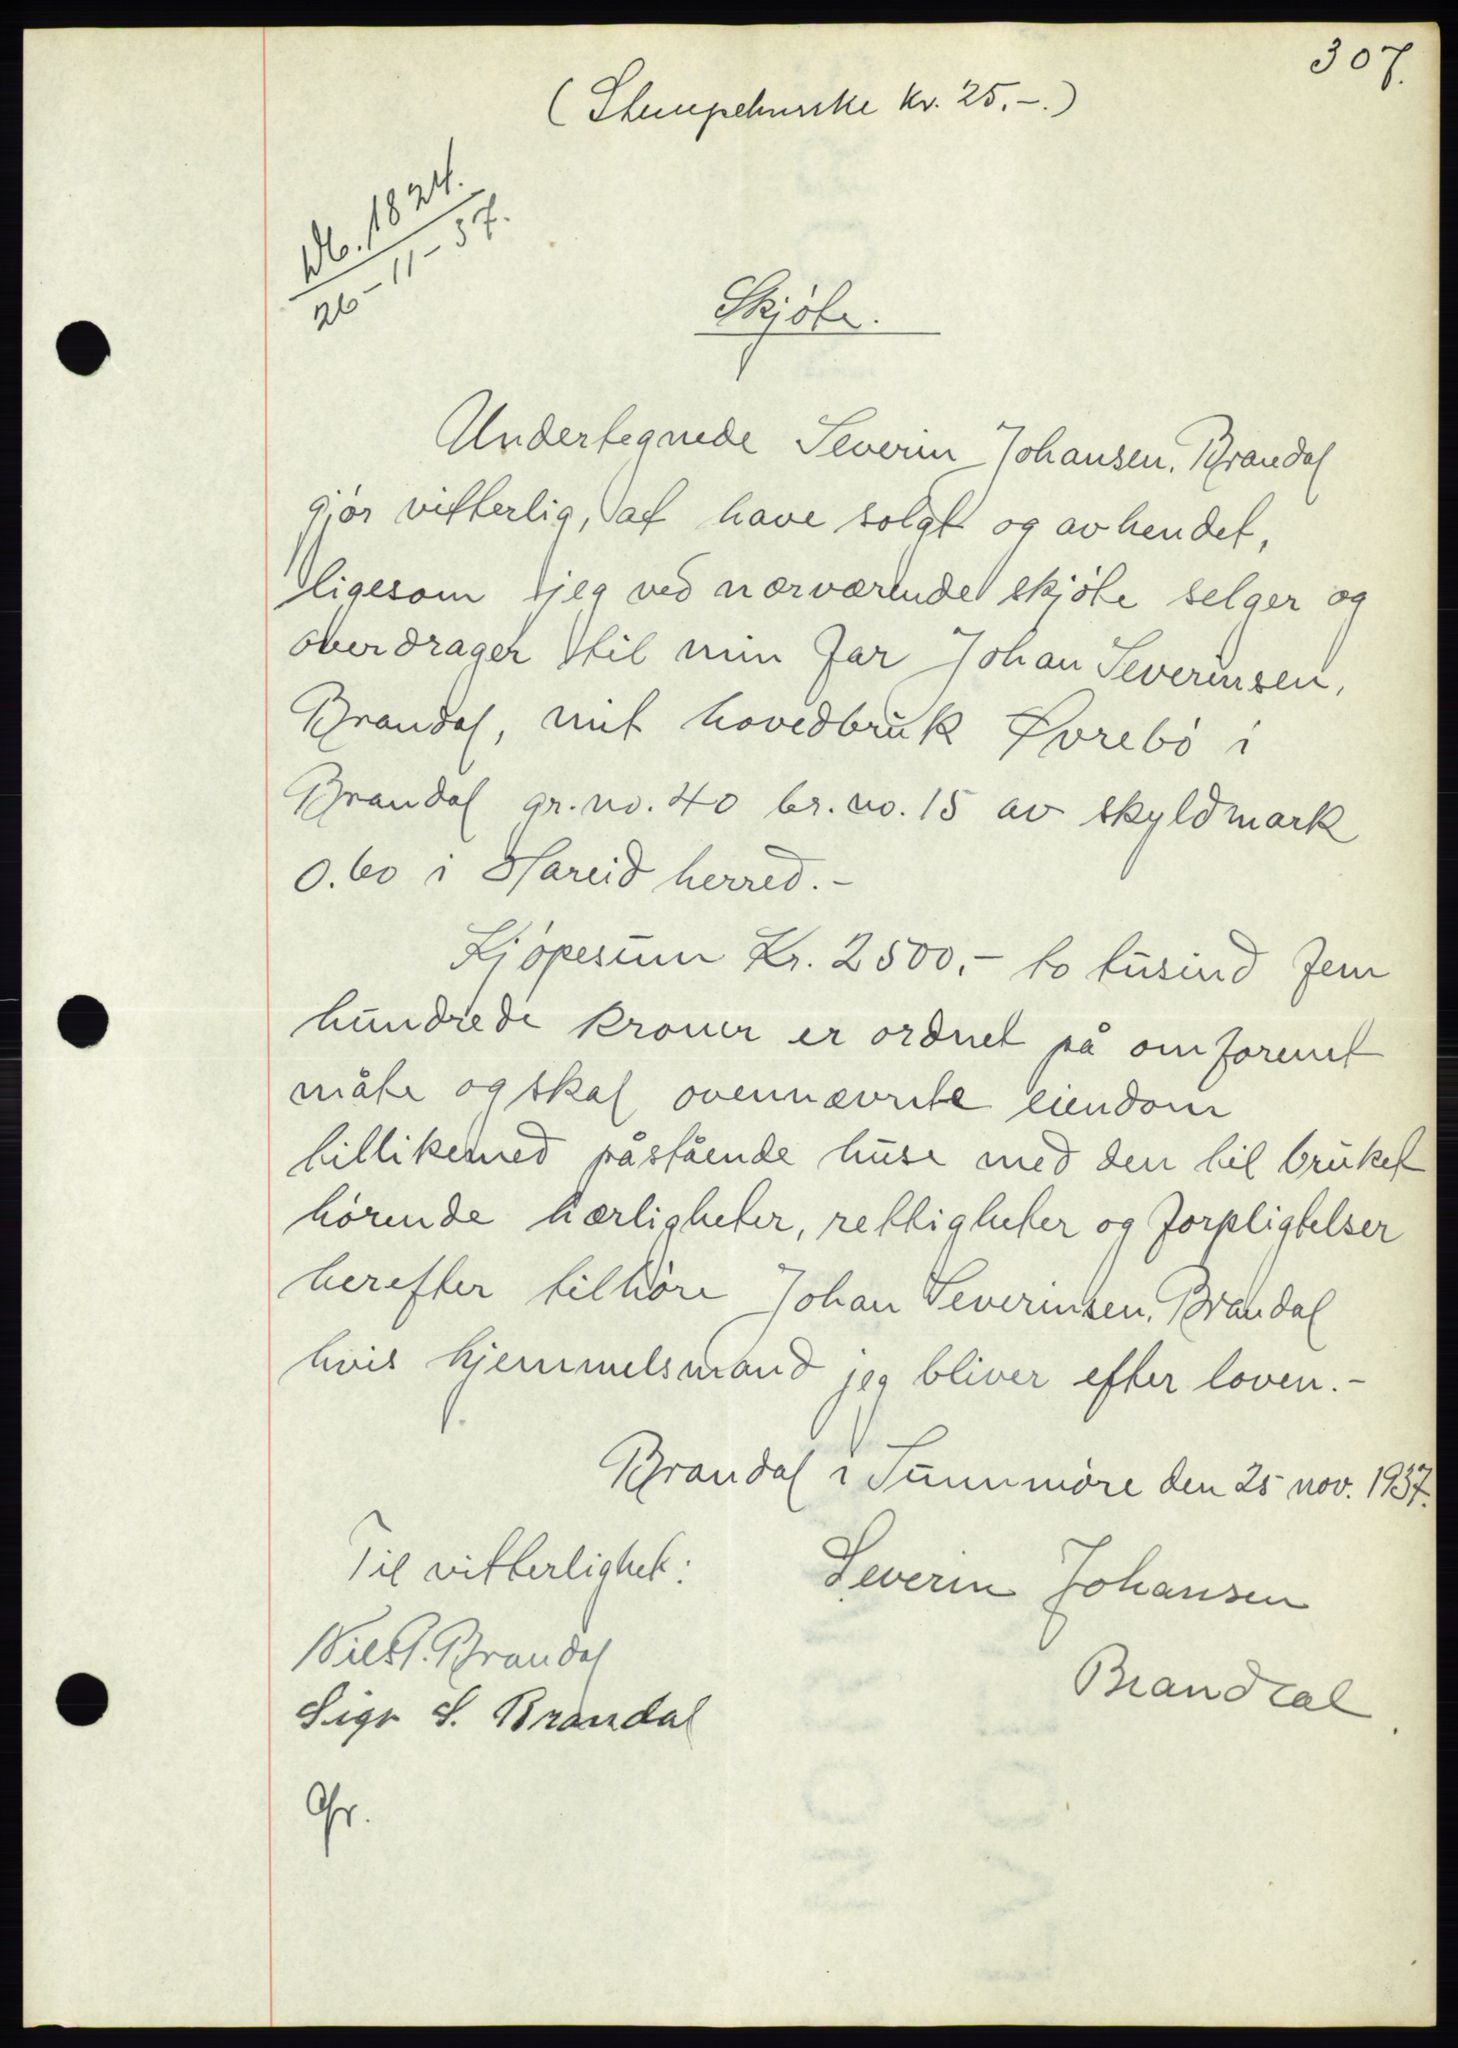 307.
(Stempelmerke kr. 25.-.)
Db. 1824.
26-11-37.
Skjöte.
Undertegnede Severin Johansen, Brandal
gjör vitterlig, at have solgt og avhendet,
ligesom jeg ved nærværende skjöte selger og
overdrager til min far Johan Severinsen,
Brandal, mit hovedbruk Övrebö i
Brandal gr. no. 40 br. no. 15 av skyldmark
0.60 i Hareid herred.-
Kjöpesum Kr. 2500,- to tusind fem
hundrede kroner er ordnet på omforenet
måte og skal ovennævnte eiendom
tillikemed påstående huse med den til bruket
hörende herligheter, rettigheter og forpligtelser
herefter tilhöre Johan Severinsen, Brandal
hvis hjemmelsmand jeg bliver efter loven.-
Brandal i Sunnmöre den 25 nov. 1937.
Til vitterlighet:
Severin Johansen
Nils P. Brandal
Brandal.
Sigv S. Brandal
Gr.